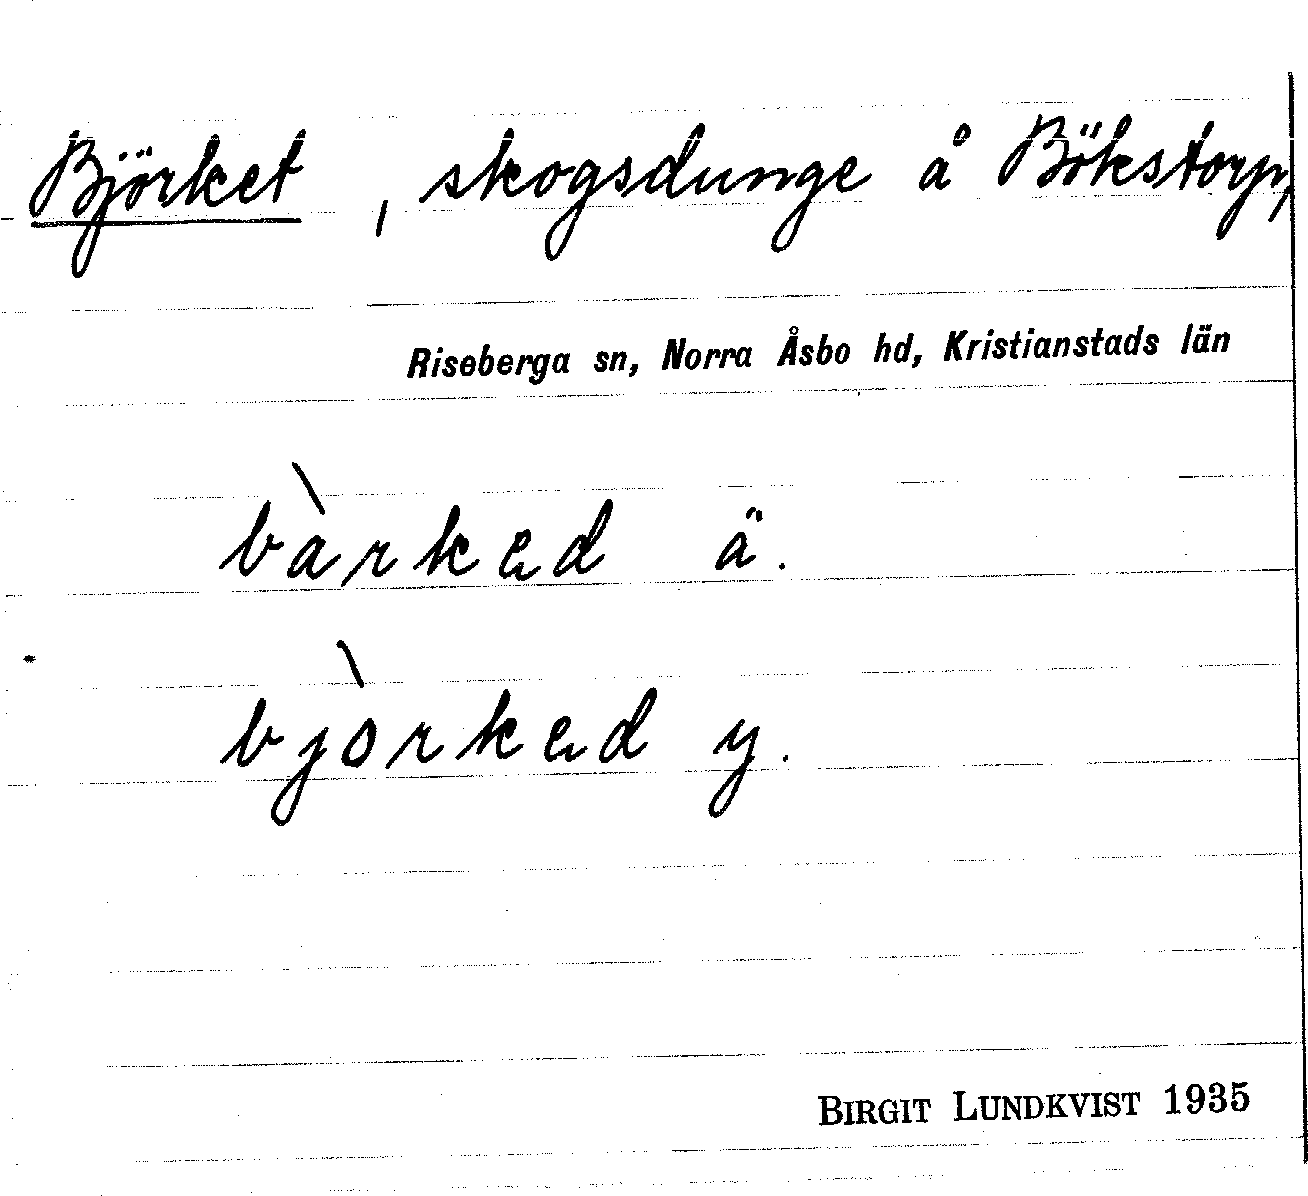 Björket, skogsdunge å Bökstorp,
Riseberga sn, Norra Åsbo hd, Kristianstads län
bàrkəd ä.
bjòrkəd y.
BIRGIT LUNDKVIST 1935